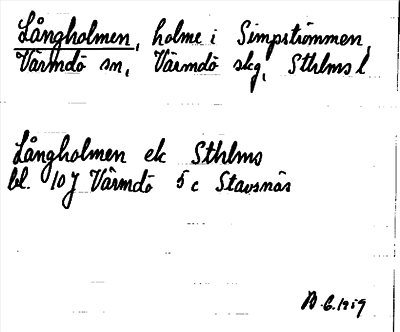 Långholmen, holme i Simpströmmen,
Värmdö sn, Värmdö skg, Sthlms l.
Långholmen ek Sthlms
bl. 10J Värmdö 5 c Stavsnäs
1959